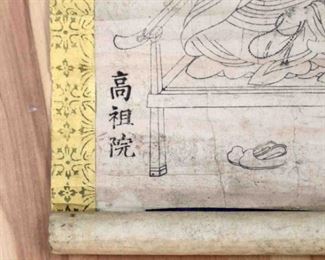 高祖院